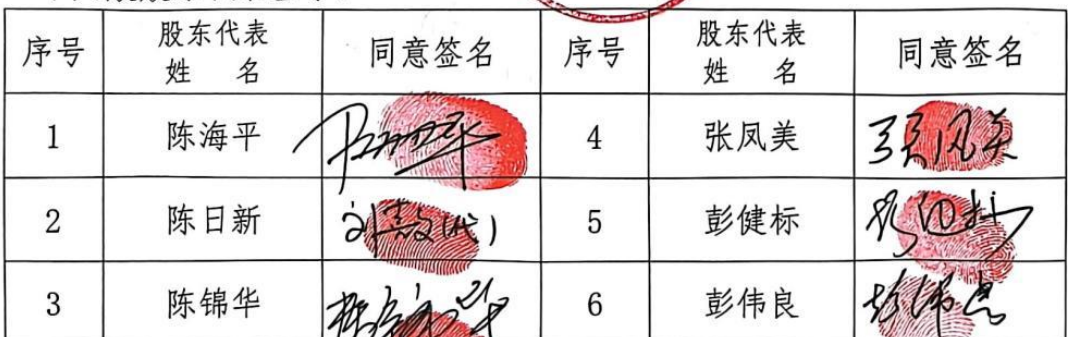 序号 股东代表姓 名 同意签名 序号 股东代表姓 名 同意签名
1 陈海平 4 张凤美 张凤美
2 陈日新 (代) 5 彭健标
3 陈锦华 6 彭伟良